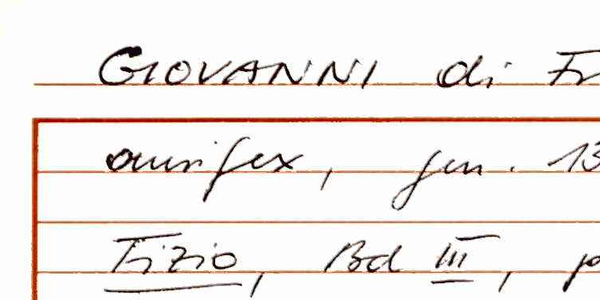 GIOVANNI di Fr
aurifex, gen. 13
Tizio, Bd III, p